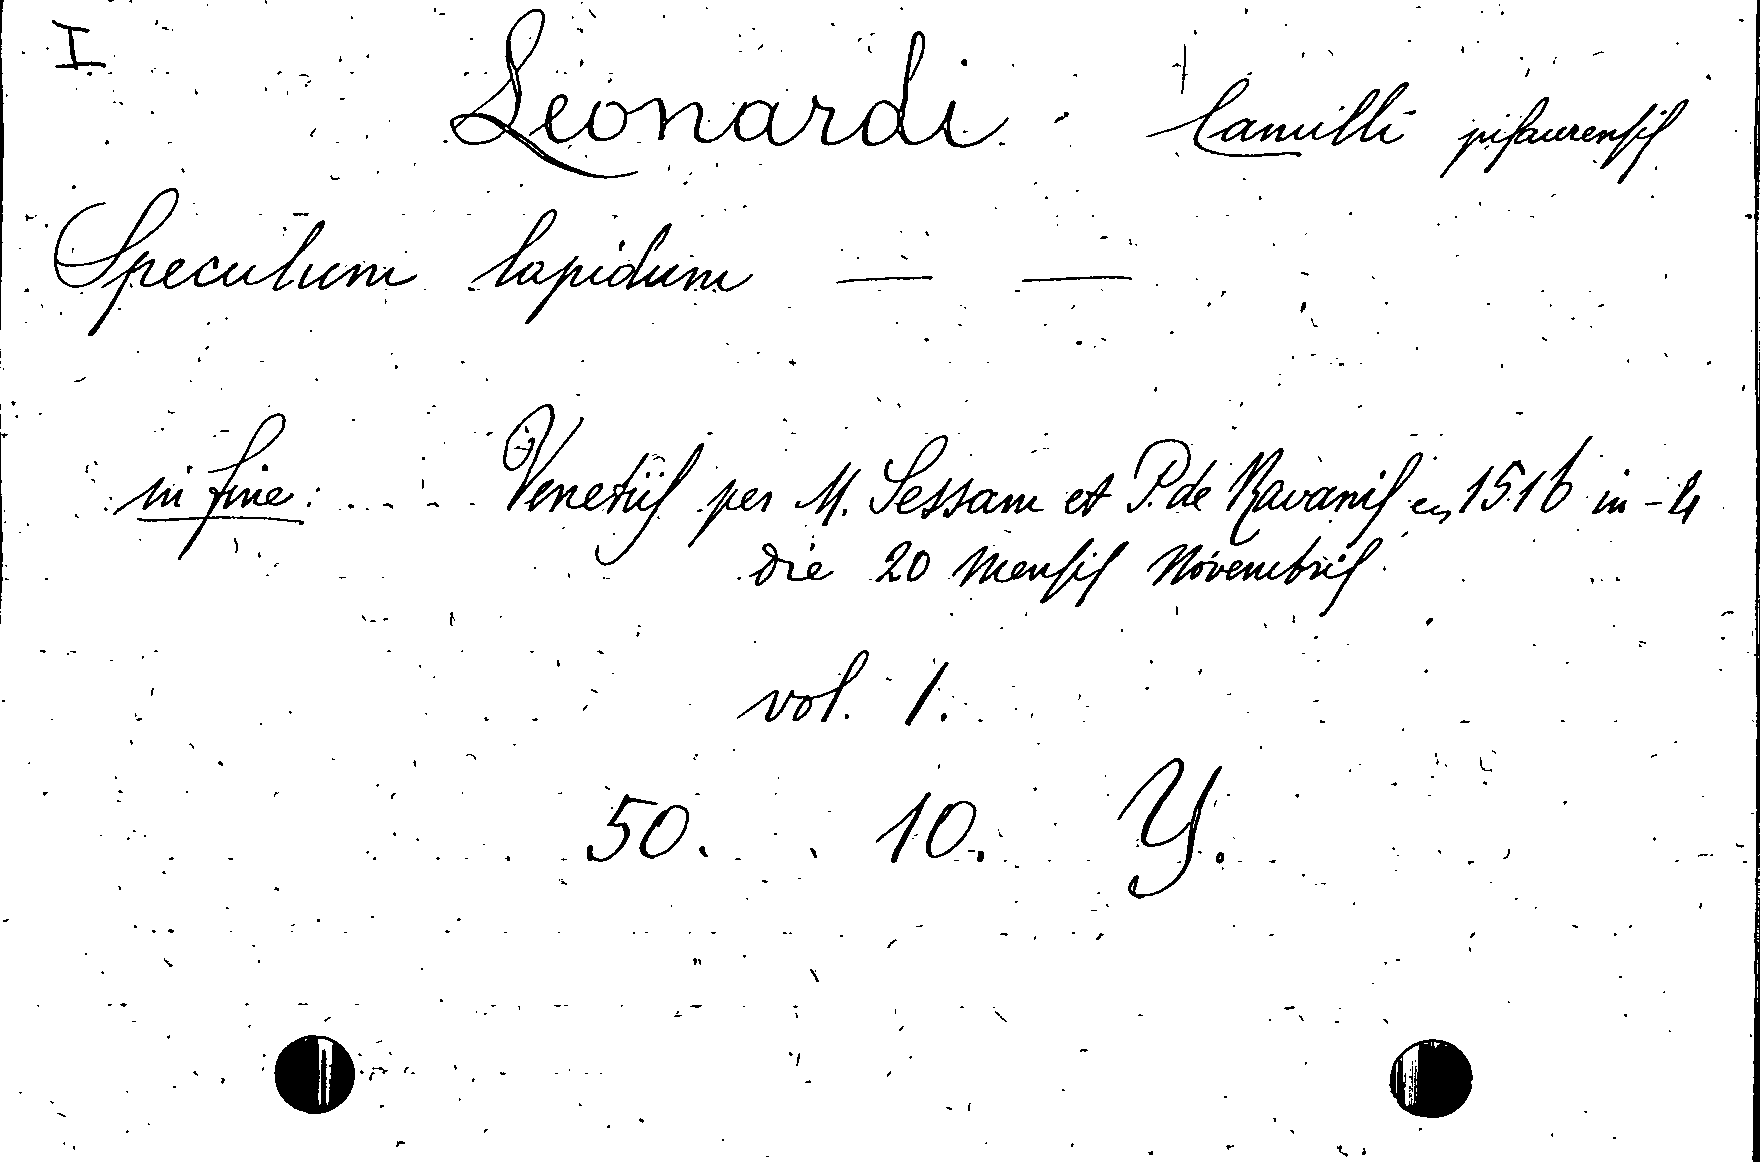 I Leonardi Camilli pisaurensis
Speculum lapidum — —
in fine: .... Venetiis per M. Sessam et P. de Ravanis en 1516 in-4
die 20 Mensis Novembris
vol. 1.
50. 10. Y.